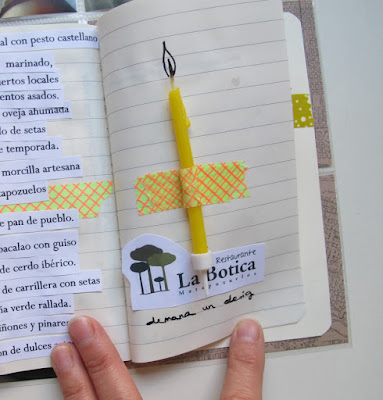 al con pesto castellano
marinado,
uertos locales
entos asados.
oveja ahumada
lo de setas
e temporada.
morcilla artesana
apozuelos
e pan de pueblo.
bacalao con guiso
de cerdo ibérico.
de carrillera con setas
ña verde rallada.
iñones y pinares
ón de dulces
Restaurante
La Botica
Matapozuelos
demana un desig